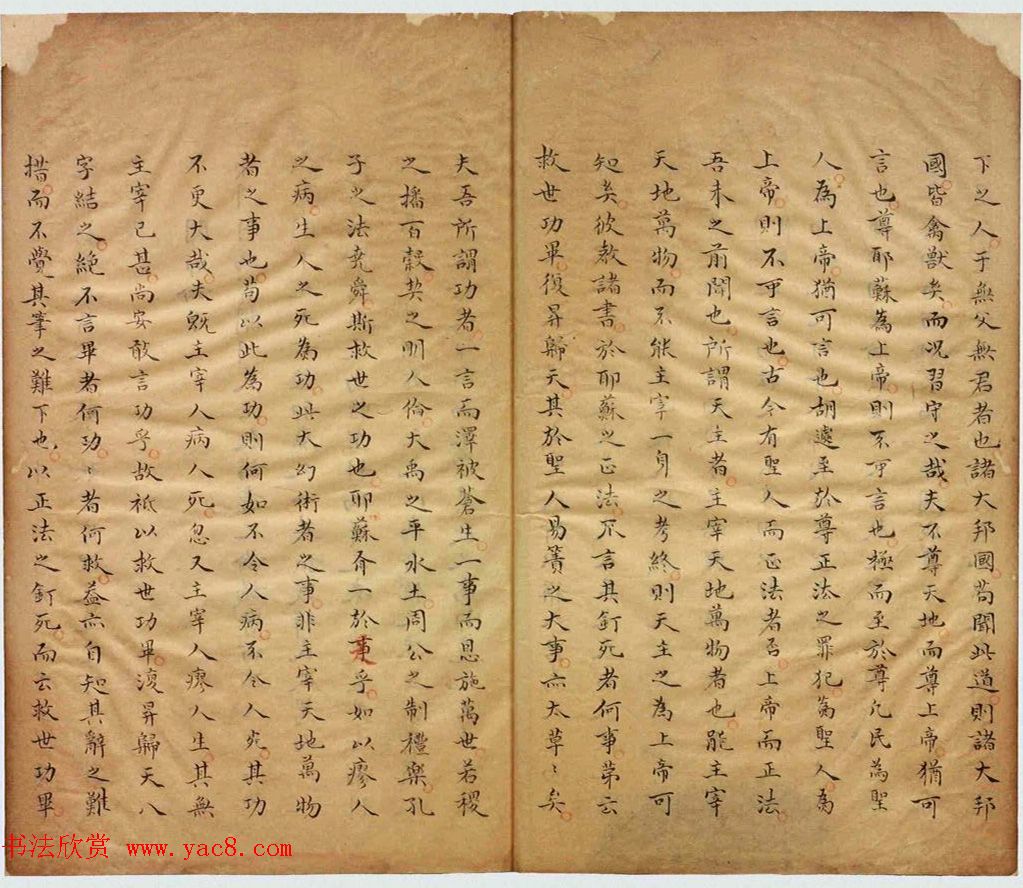 下之人于無父無君者也諸大邦國苟聞此道則諸大邦
國皆禽獸矣而况習守之哉夫不尊天地而尊上帝猶可
言也尊耶蘇為上帝則不可言也極而至於尊凢民為聖
人為上帝猶可言也胡遽至於尊正法之罪犯為聖人為
上帝則不可言也古今有聖人而正法者否上帝而正法
吾未之前聞也所謂天主者主宰天地萬物者也能主宰
天地萬物而不能主宰一身之考終則天主之為上帝可
知矣彼教諸書於耶蘇之正法不言其釘死者何事第云
救世功畢復昇歸天其於聖人易簀之大事亦太草〻矣
夫吾所謂功者一言而澤被蒼生一事而恩施萬世若稷
之播百穀契之明人倫大禹之平水土周公之制禮樂孔
子之法堯舜斯救世之功也耶蘇有一於事乎如以瘳人
之病生人之死為功此大幻術者之事非主宰天地萬物
者之事也苟以此為功則何如不令人病不令人死其功
不更大哉夫既主宰人病人死忽又主宰人瘳人生其無
主宰已甚尚安敢言功乎故祗以救世功畢復昇歸天八
字結之絕不言畢者何功〻者何救益亦自知其辭之難
措而不覺其筆之難下也以正法之釘死而云救世功畢
书法欣赏 www.yac8.com